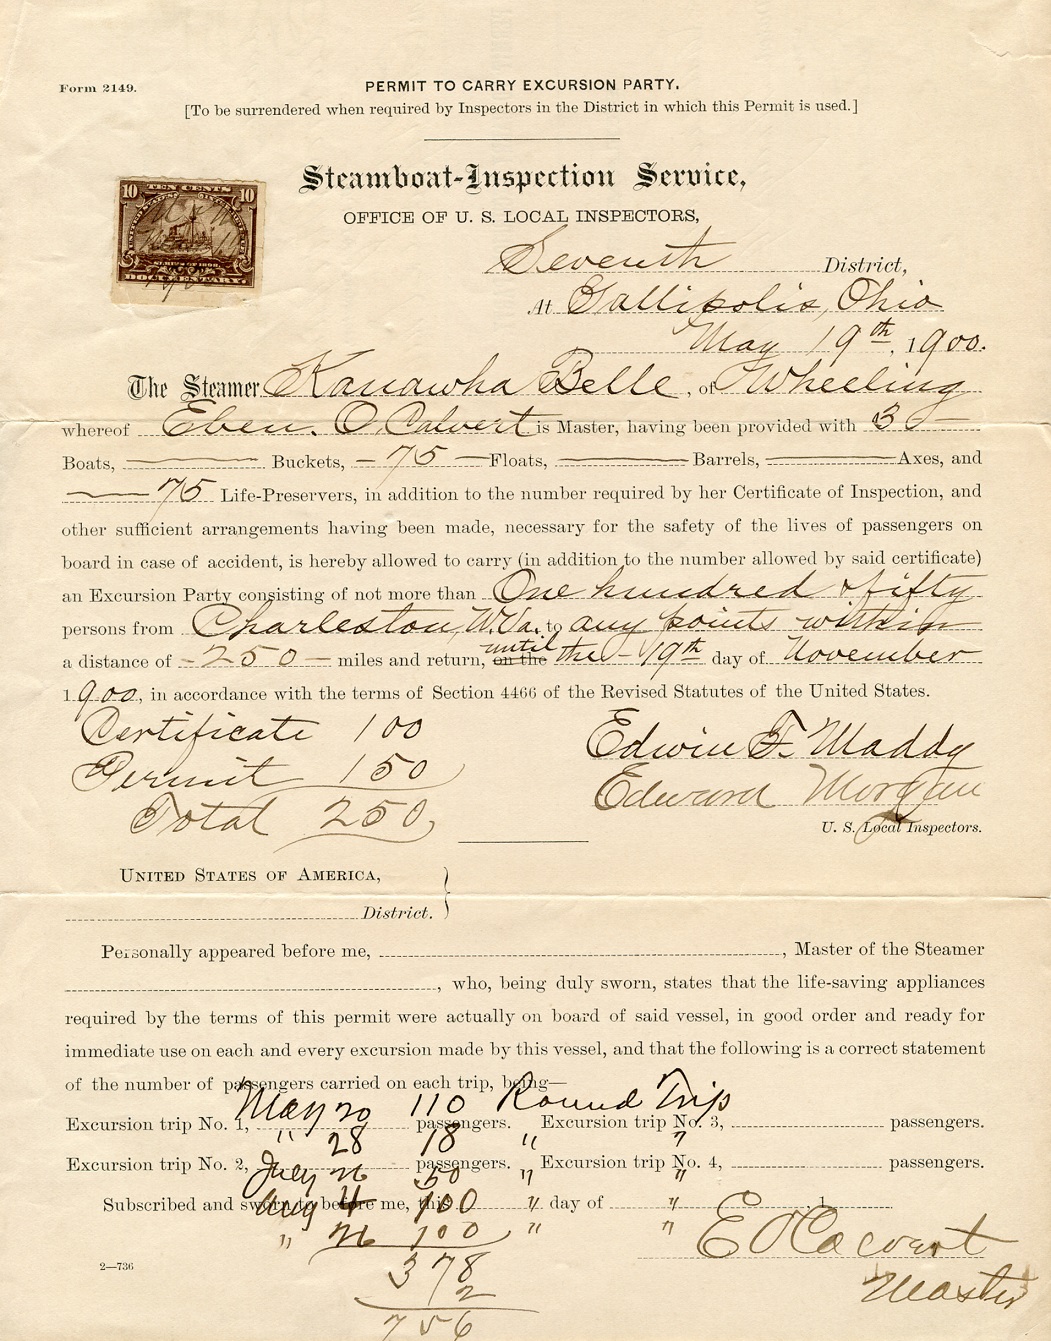 Form 2149.
PERMIT TO CARRY EXCURSION PARTY.
[To be surrendered when required by Inspectors in the District in which this Permit is used.]
Steamboat-Inspection Service,
OFFICE OF U. S. LOCAL INSPECTORS,
10 TEN CENTS 10
DOCUMENTARY
Seventh District,
At Gallipolis, Ohio
May 19th, 1900.
The Steamer Kanawha Belle, of Wheeling
whereof Eben. O. Calvert is Master, having been provided with 3
Boats, Buckets, - 75 - Floats, Barrels, Axes, and
75 Life-Preservers, in addition to the number required by her Certificate of Inspection, and
other sufficient arrangements having been made, necessary for the safety of the lives of passengers on
board in case of accident, is hereby allowed to carry (in addition to the number allowed by said certificate)
an Excursion Party consisting of not more than One hundred & fifty
persons from Charleston, W.Va. to any points within
a distance of - 250 - miles and return, on the until the - 19th day of November
1900, in accordance with the terms of Section 4466 of the Revised Statutes of the United States.
Certificate 100
Permit 150
Total 250
Edwin F. Maddy
Edward Morgan
U. S. Local Inspectors.
UNITED STATES OF AMERICA,
District.
Personally appeared before me, , Master of the Steamer
, who, being duly sworn, states that the life-saving appliances
required by the terms of this permit were actually on board of said vessel, in good order and ready for
immediate use on each and every excursion made by this vessel, and that the following is a correct statement
of the number of passengers carried on each trip, being—
May 20 110 Round Trip
Excursion trip No. 1, passengers. Excursion trip No. 3, passengers.
" 28 18 " "
Excursion trip No. 2, passengers. Excursion trip No. 4, passengers.
July 50 " "
Subscribed and sworn to before me, this day of 1
Aug 100 " "
" 100 " "
378
2
756
E O Calvert
Master
2—736